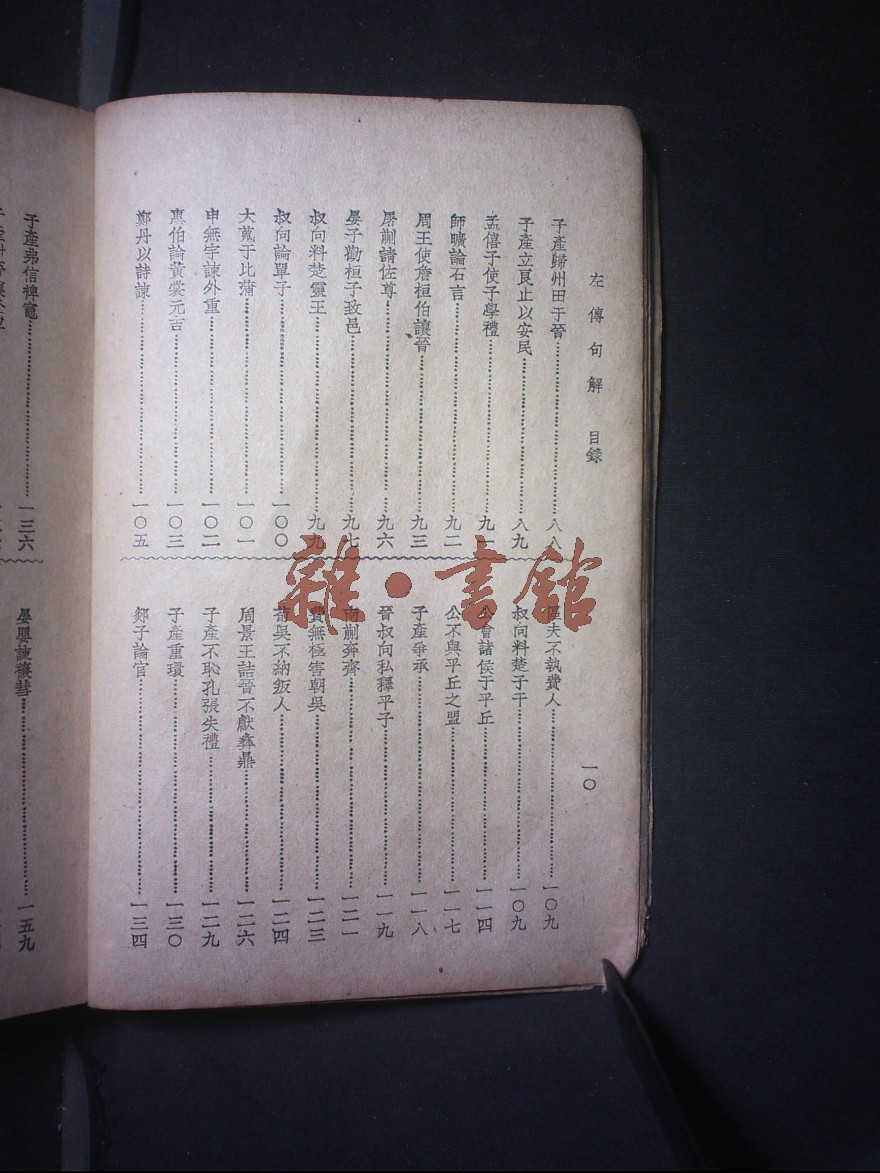 左傳句解 目錄 一〇
子產歸州田于晉 八八
子產立良止以安民 八九
孟僖子使子學禮 九一
師曠論石言 九二
周王使詹桓伯讓晉 九三
屠蒯請佐尊 九六
晏子勸桓子致邑 九七
叔向料楚靈王 九九
叔向論單子 一〇〇
大蒐于比蒲 一〇一
申無宇諫外重 一〇二
惠伯論黃裳元吉 一〇三
鄭丹以詩諫 一〇五
區夫不執費人 一〇九
叔向料楚子干 一〇九
公會諸侯于平丘 一一四
公不與平丘之盟 一一七
子產爭承 一一八
晉叔向私釋平子 一一九
南蒯奔齊 一二一
費無極害朝吳 一二三
荀吳不納叛人 一二四
周景王詰晉不獻彝鼎 一二六
子產不恥孔張失禮 一二九
子產重環 一三〇
郯子論官 一三四
子產弗信裨竈 一三六
晏嬰諫禳彗 一五九
雜·書館